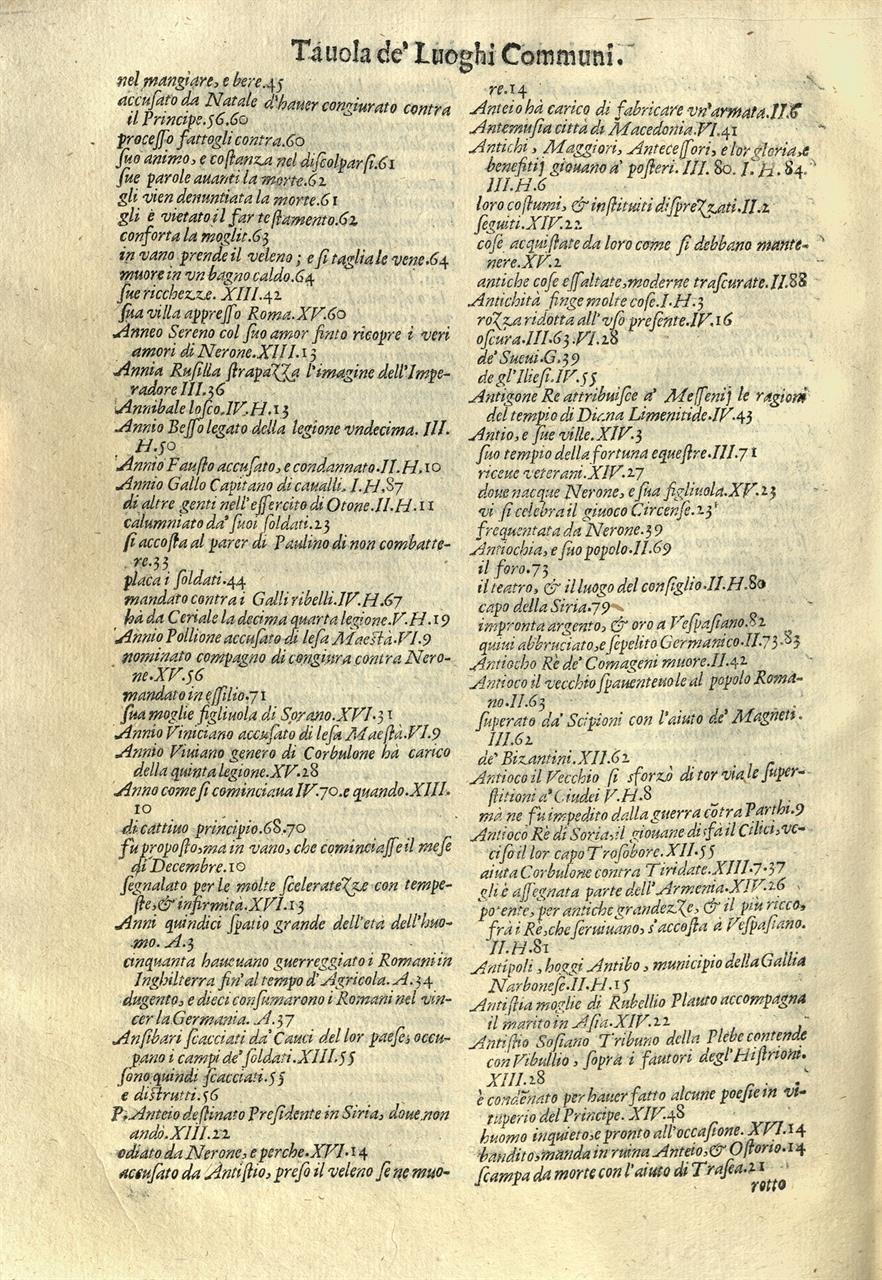 Tauola de' Luoghi Communi.
nel mangiare, e bere.45
accuſato da Natale d'hauer congiurato contra
il Principe.56.60
proceſſo fattogli contra.60
ſuo animo, e coſtanza nel diſcolparſi.61
ſue parole auanti la morte.62
gli vien denuntiata la morte.61
gli è vietato il far teſtamento.62
conforta la moglit.63
in vano prende il veleno; e ſi taglia le vene.64
muore in vn bagno caldo.64
ſue ricchezze. XIII.42
ſua villa appreſſo Roma.XV.60
Anneo Sereno col ſuo amor finto ricopre i veri
amori di Nerone.XIII.13
Annia Ruſilla ſtrapazza l'imagine dell'Impe-
radore III.36
Annibale loſco.IV.H.13
Annio Beſſo legato della legione vndecima. III.
H.50
Annio Fauſto accuſato, e condannato.II.H.10
Annio Gallo Capitano di caualli. I.H.87
di altre genti nell'eſſercito di Otone.II.H.11
calumniato da' ſuoi ſoldati.23
ſi accoſta al parer di Paulino di non combatte-
re.33
placa i ſoldati.44
mandato contra i Galli ribelli.IV.H.67
hà da Ceriale la decima quarta legione.V.H.19
Annio Pollione accuſato di leſa Maeſtà.VI.9
nominato compagno di congiura contra Nero-
ne.XV.56
mandato in eſſilio.71
ſua moglie figliuola di Sorano.XVI.31
Annio Viniciano accuſato di leſa Maeſtà.VI.9
Annio Viuiano genero di Corbulone hà carico
della quinta legione.XV.28
Anno come ſi cominciaua IV.70.e quando.XIII.
10
di cattiuo principio.68.70
fu propoſto, ma in vano, che cominciaſſe il meſe
di Decembre.10
ſegnalato per le molte ſceleratezze con tempe-
ſte, & infirmità.XVI.13
Anni quindici ſpatio grande dell'età dell'huo-
mo. A.3
cinquanta haueuano guerreggiato i Romani in
Inghilterra fin'al tempo d'Agricola. A.34
dugento, e dieci conſumarono i Romani nel vin-
cer la Germania. A.37
Anſibari ſcacciati da' Cauci del lor paeſe, occu-
pano i campi de' ſoldati.XIII.55
ſono quindi ſcacciati.55
e diſtrutti.56
P. Anteio deſtinato Preſidente in Siria, doue non
andò.XIII.22
odiato da Nerone, e perche.XVI.14
accuſato da Antiſtio, preſo il veleno ſe ne muo-
re.14
Anteio hà carico di fabricare vn'armata.II.6
Antemuſia città di Macedonia.VI.41
Antichi, Maggiori, Anteceſſori, e lor gloria, e
benefitij giouano a' poſteri. III. 80. I. H. 84.
III.H.6
loro coſtumi, & inſtituiti diſprezzati.II.2
ſeguiti.XIV.22
coſe acquiſtate da loro come ſi debbano mante-
nere.XV.2
antiche coſe eſſaltate, moderne traſcurate.II.88
Antichità finge molte coſe.I.H.3
rozza ridotta all'vſo preſente.IV.16
oſcura.III.63.VI.28
de' Sueui.G.39
de gl'Ilieſi.IV.55
Antigone Re attribuiſce a' Meſſenij le ragioni
del tempio di Diana Limenitide.IV.43
Antio, e ſue ville.XIV.3
ſuo tempio della fortuna equeſtre.III.71
riceue veterani.XIV.27
doue nacque Nerone, e ſua figliuola.XV.23
vi ſi celebra il giuoco Circenſe.23
frequentata da Nerone.39
Antiochia, e ſuo popolo.II.69
il foro.73
il teatro, & il luogo del conſiglio.II.H.80
capo della Siria.79
impronta argento, & oro a Veſpaſiano.82
quiui abbruciato, e ſepelito Germanico.II.73.83
Antiocho Rè de' Comageni muore.II.42
Antioco il vecchio ſpauenteuole al popolo Roma-
no.II.63
ſuperato da' Scipioni con l'aiuto de' Magneti.
III.62
de' Bizantini.XII.62
Antioco il Vecchio ſi sforzò di tor via le ſuper-
ſtitioni a' Giudei V.H.8
ma ne fu impedito dalla guerra cōtra Parthi.9
Antioco Rè di Soria, il giouane disfà il Cilici, vc-
ciſo il lor capo Troſobore.XII.55
aiuta Corbulone contra Tiridate.XIII.7.37
gli è aſſegnata parte dell'Armenia.XIV.26
potente, per antiche grandezze, & il più ricco,
frà i Re, che ſeruiuano, s'accoſta a Veſpaſiano.
II.H.81
Antipoli, hoggi Antibo, municipio della Gallia
Narboneſe.II.H.15
Antiſtia moglie di Rubellio Plauto accompagna
il marito in Aſia.XIV.22
Antiſtio Soſiano Tribuno della Plebe contende
con Vibullio, ſopra i fautori degl'Hiſtrioni.
XIII.28
è condēnato per hauer fatto alcune poeſie in vi-
tuperio del Principe. XIV.48
huomo inquieto, e pronto all'occaſione. XVI.14
bandito, manda in ruina Anteio, & Oſtorio.14
ſcampa da morte con l'aiuto di Traſea.21
rotto